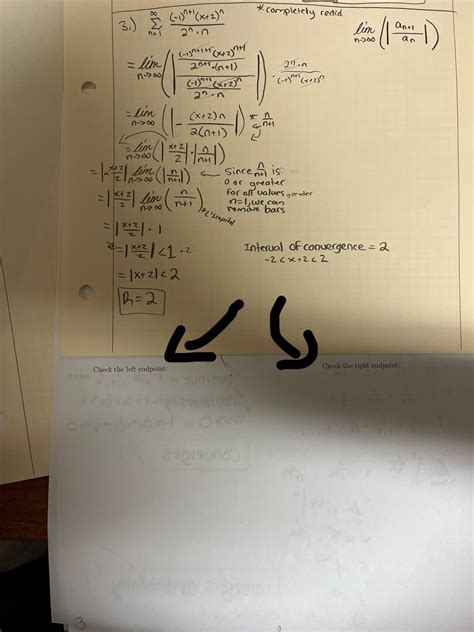 * completely redid
3.) ∞ Σ n=1 (-1)^{n+1}(x+2)^n / 2^n · n
lim n→∞ (| a_{n+1} / a_n |)
= lim n→∞ (| (-1)^{n+1+1}(x+2)^{n+1} / 2^{n+1}·(n+1) / (-1)^{n+1}(x+2)^n / 2^n · n |) · 2^n · n / (-1)^{n+1}(x+2)^n
= lim n→∞ (| - (x+2)n / 2(n+1) |) * n / n+1
= lim n→∞ (| x+2 / 2 | · | n / n+1 |)
= | x+2 / 2 | lim n→∞ (| n / n+1 |) ← Since n / n+1 is
0 or greater
for all values greater
n=1, we can
remove bars
= | x+2 / 2 | lim n→∞ ( n / n+1 ) * L'hopital
= | x+2 / 2 | · 1
2· = | x+2 / 2 | < 1 · 2
Interval of convergence = 2
-2 < x+2 < 2
= |x+2| < 2
R = 2
Check the left endpoint:
Check the right endpoint:
converges
3
3